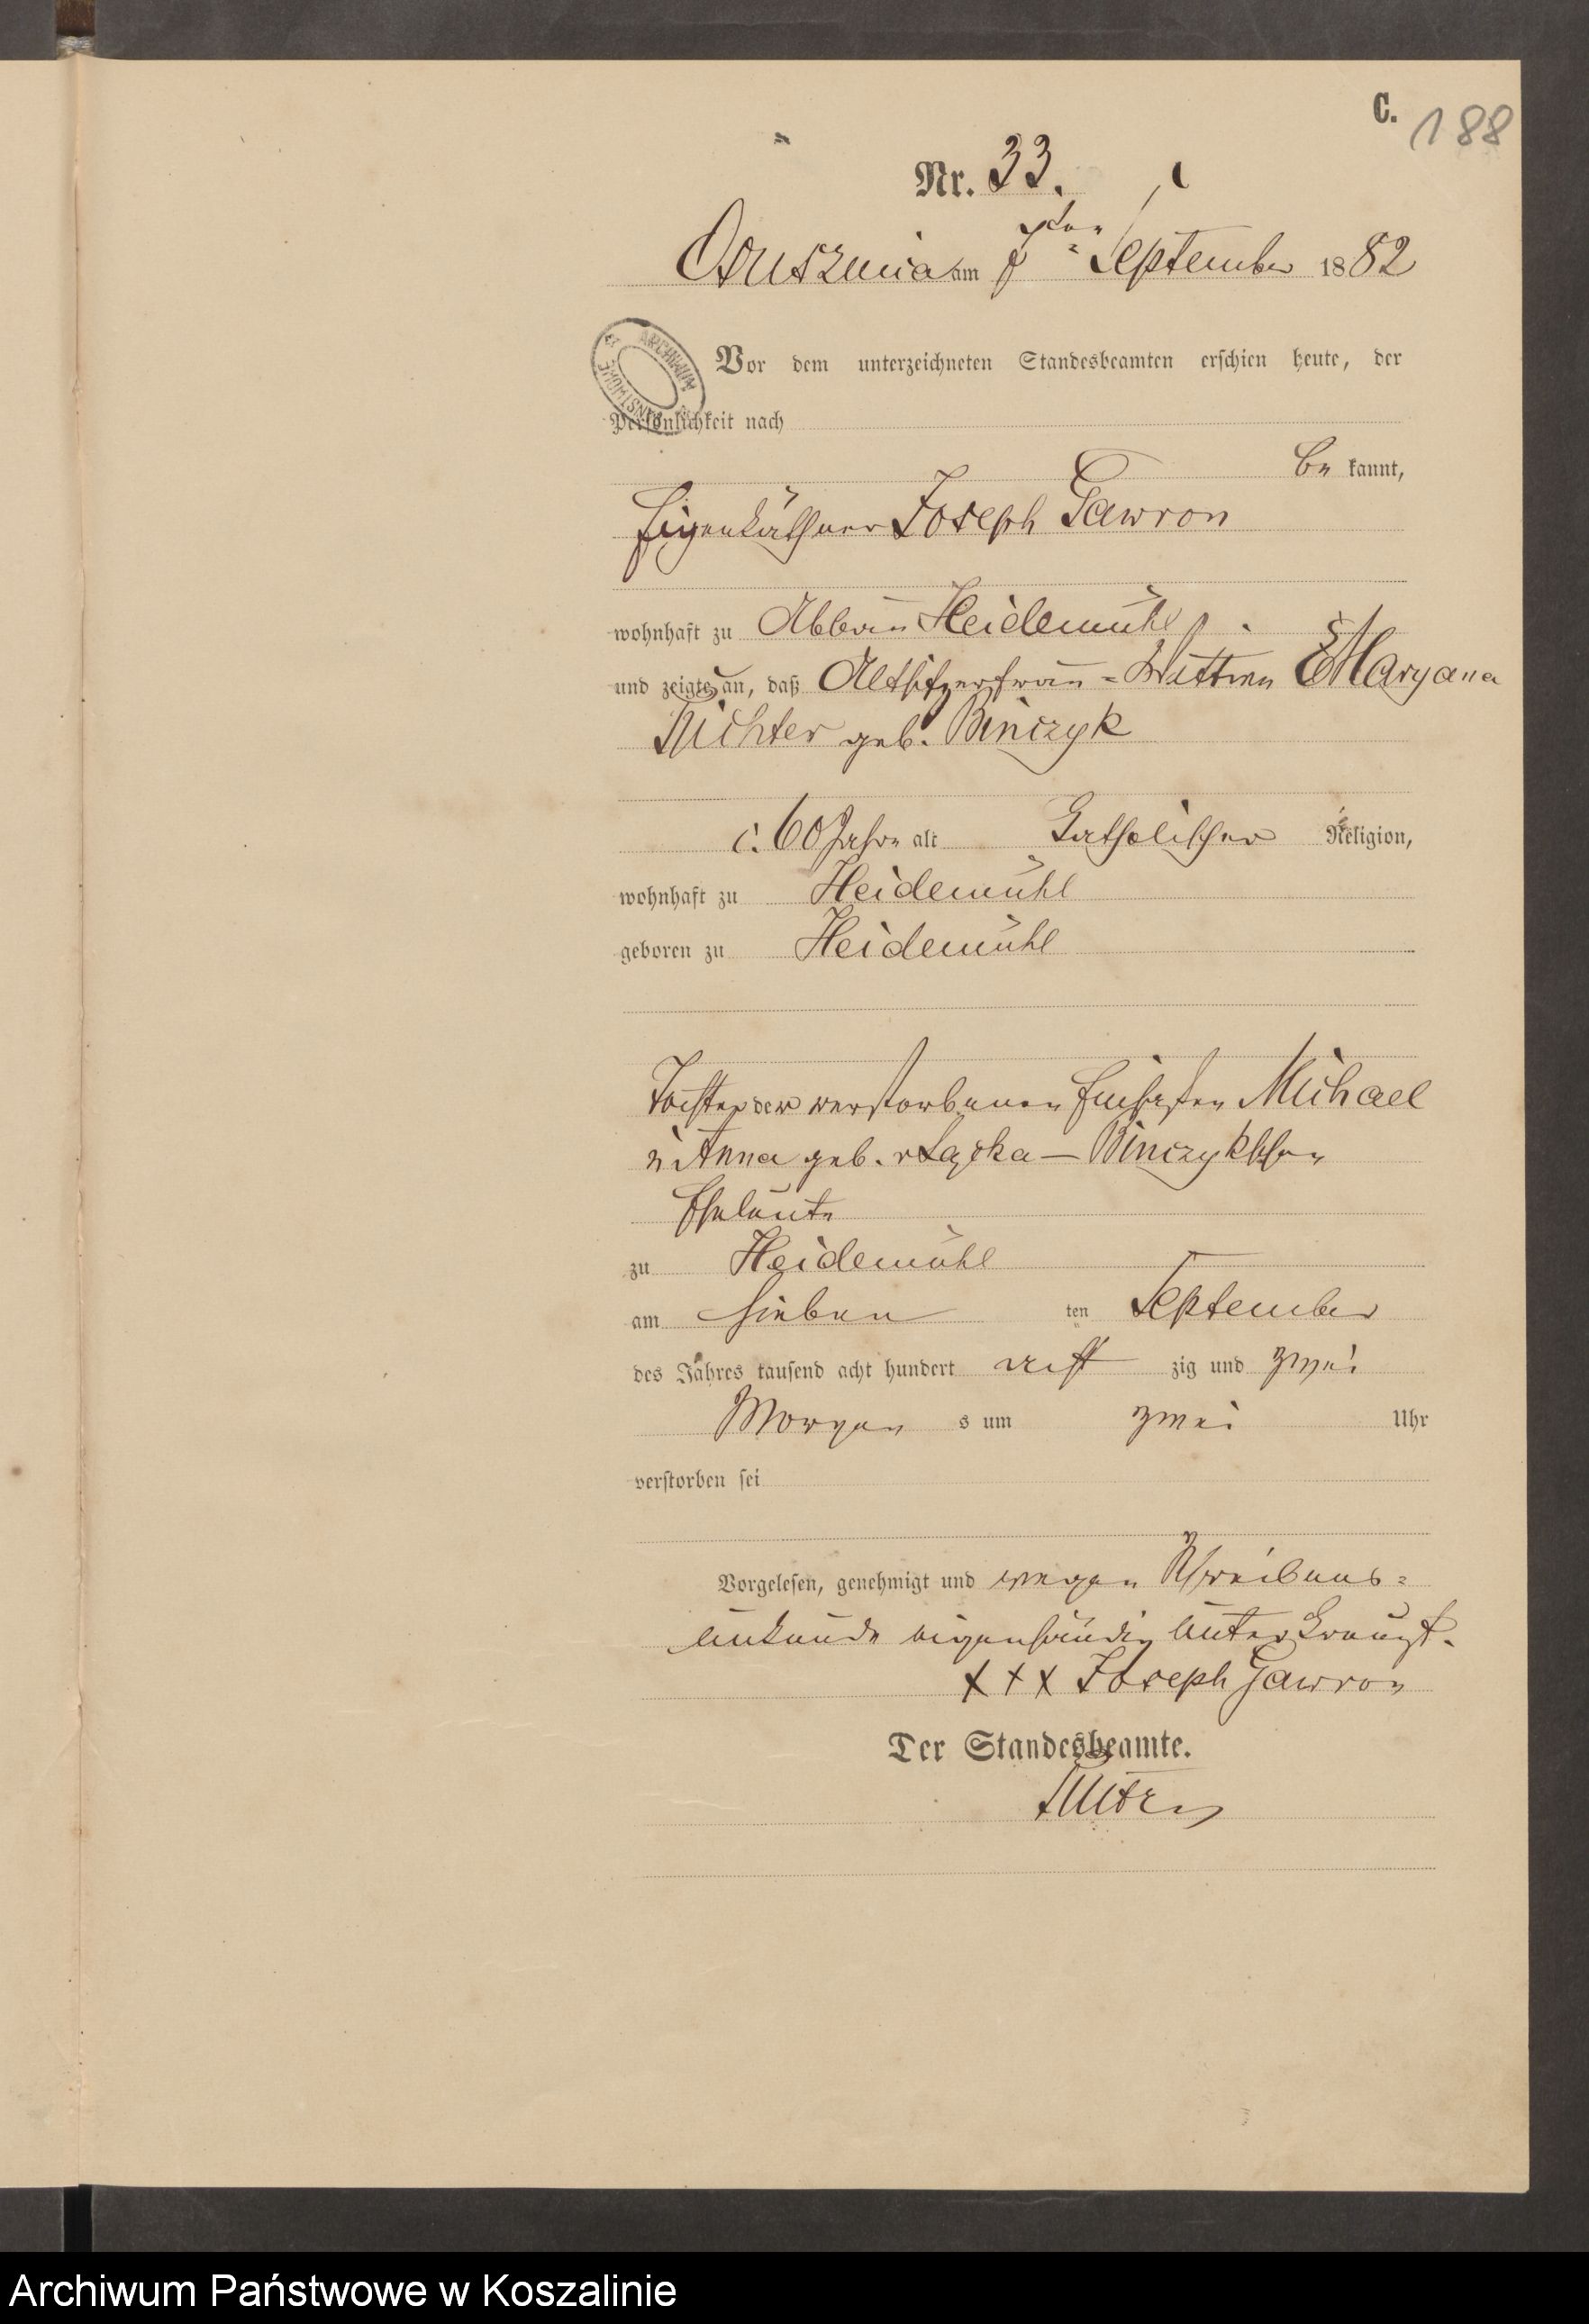 C. 188
Nr. 33.
Osusznica am 7ten September 1882
ARCHIWUM PAŃSTWOWE
Vor dem unterzeichneten Standesbeamten erschien heute, der
Persönlichkeit nach
be kannt,
Eigenkäthner Joseph Gawron
wohnhaft zu Abbau Heidemühl
und zeigte an, daß Altsitzerfrau = Wittwe Maryana
Richter geb. Binczyk
c. 60 Jahre alt Katholischer Religion,
wohnhaft zu Heidemühl
geboren zu Heidemühl
Tochter der verstorbenen Einsaßen Michael
u Anna geb. Binczykschen
Eheleute
zu Heidemühl
am sieben ten September
des Jahres tausend acht hundert acht zig und zwei
Morgen s um zwei Uhr
verstorben sei
Vorgelesen, genehmigt und wegen Schreibens=
unkunde eigenhändig unterkreuzt.
XXX Joseph Gawron
Der Standesbeamte.
Archiwum Państwowe w Koszalinie